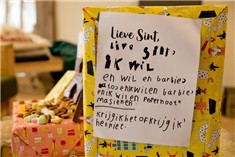 Lieve Sint,
Live SINT
IK WIL
en wil en barbie
auto en ik wil en barbie
en ik wil en pepernoot
masjenen
krijg ik het of krijg ik
het niet